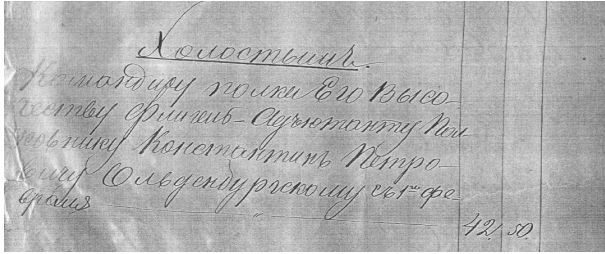 Холостымъ.
Командиру полка Его Высо-
честву Флигель-Адъютанту Пол-
ковнику Константинъ Петро-
вичу Ольденбургскому съ 1го фе-
враля " 42. 50.